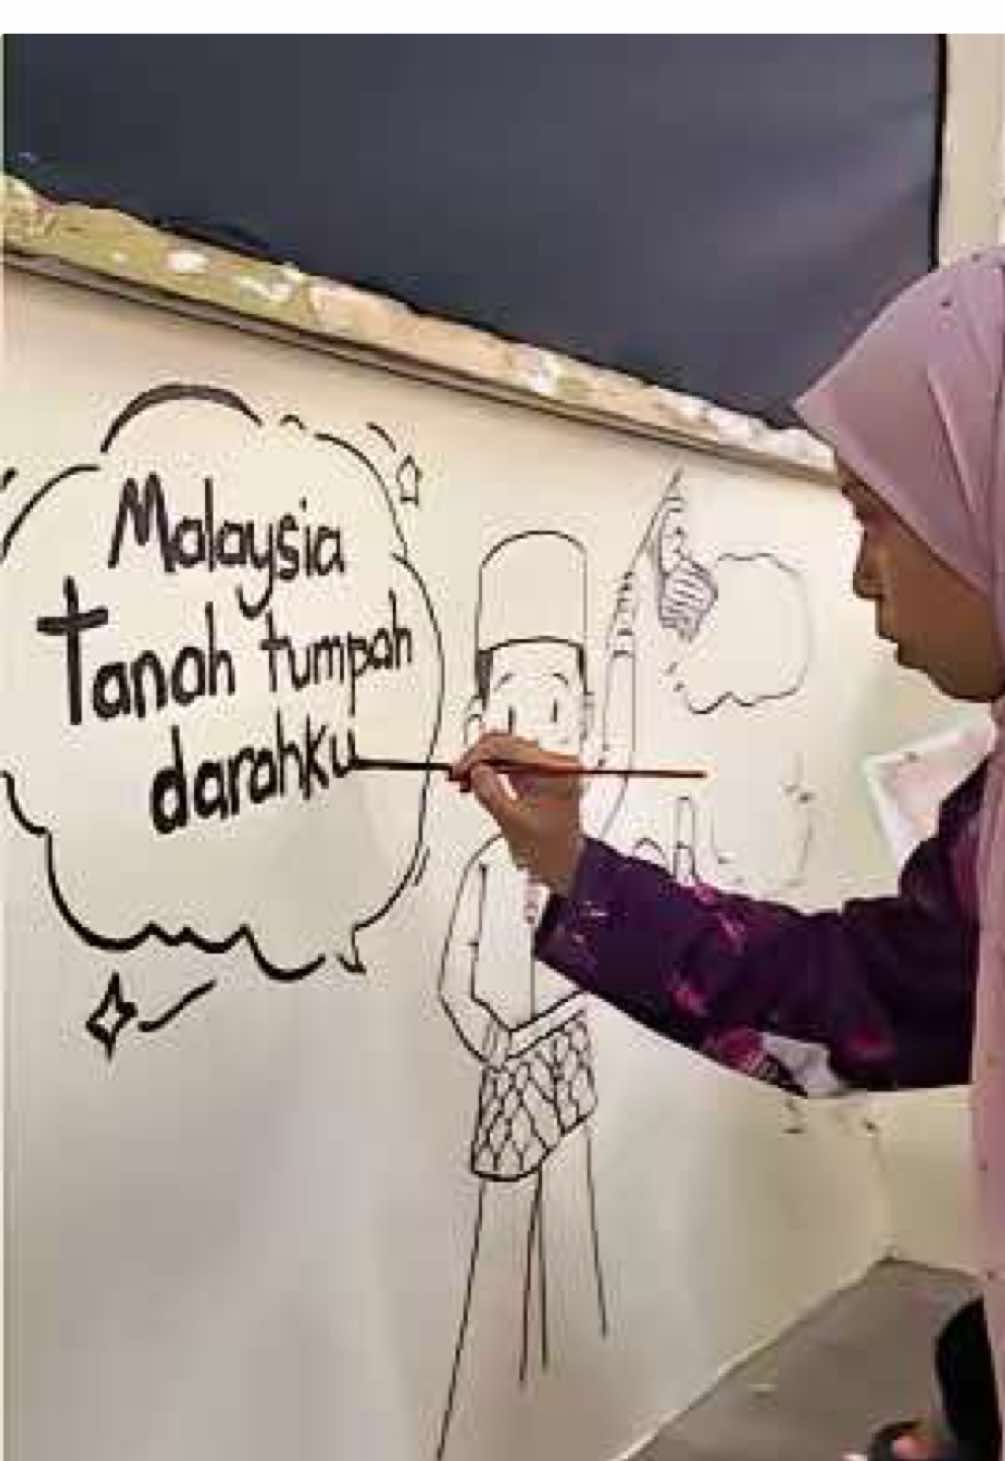 Malaysia
Tanah tumpah
darahku